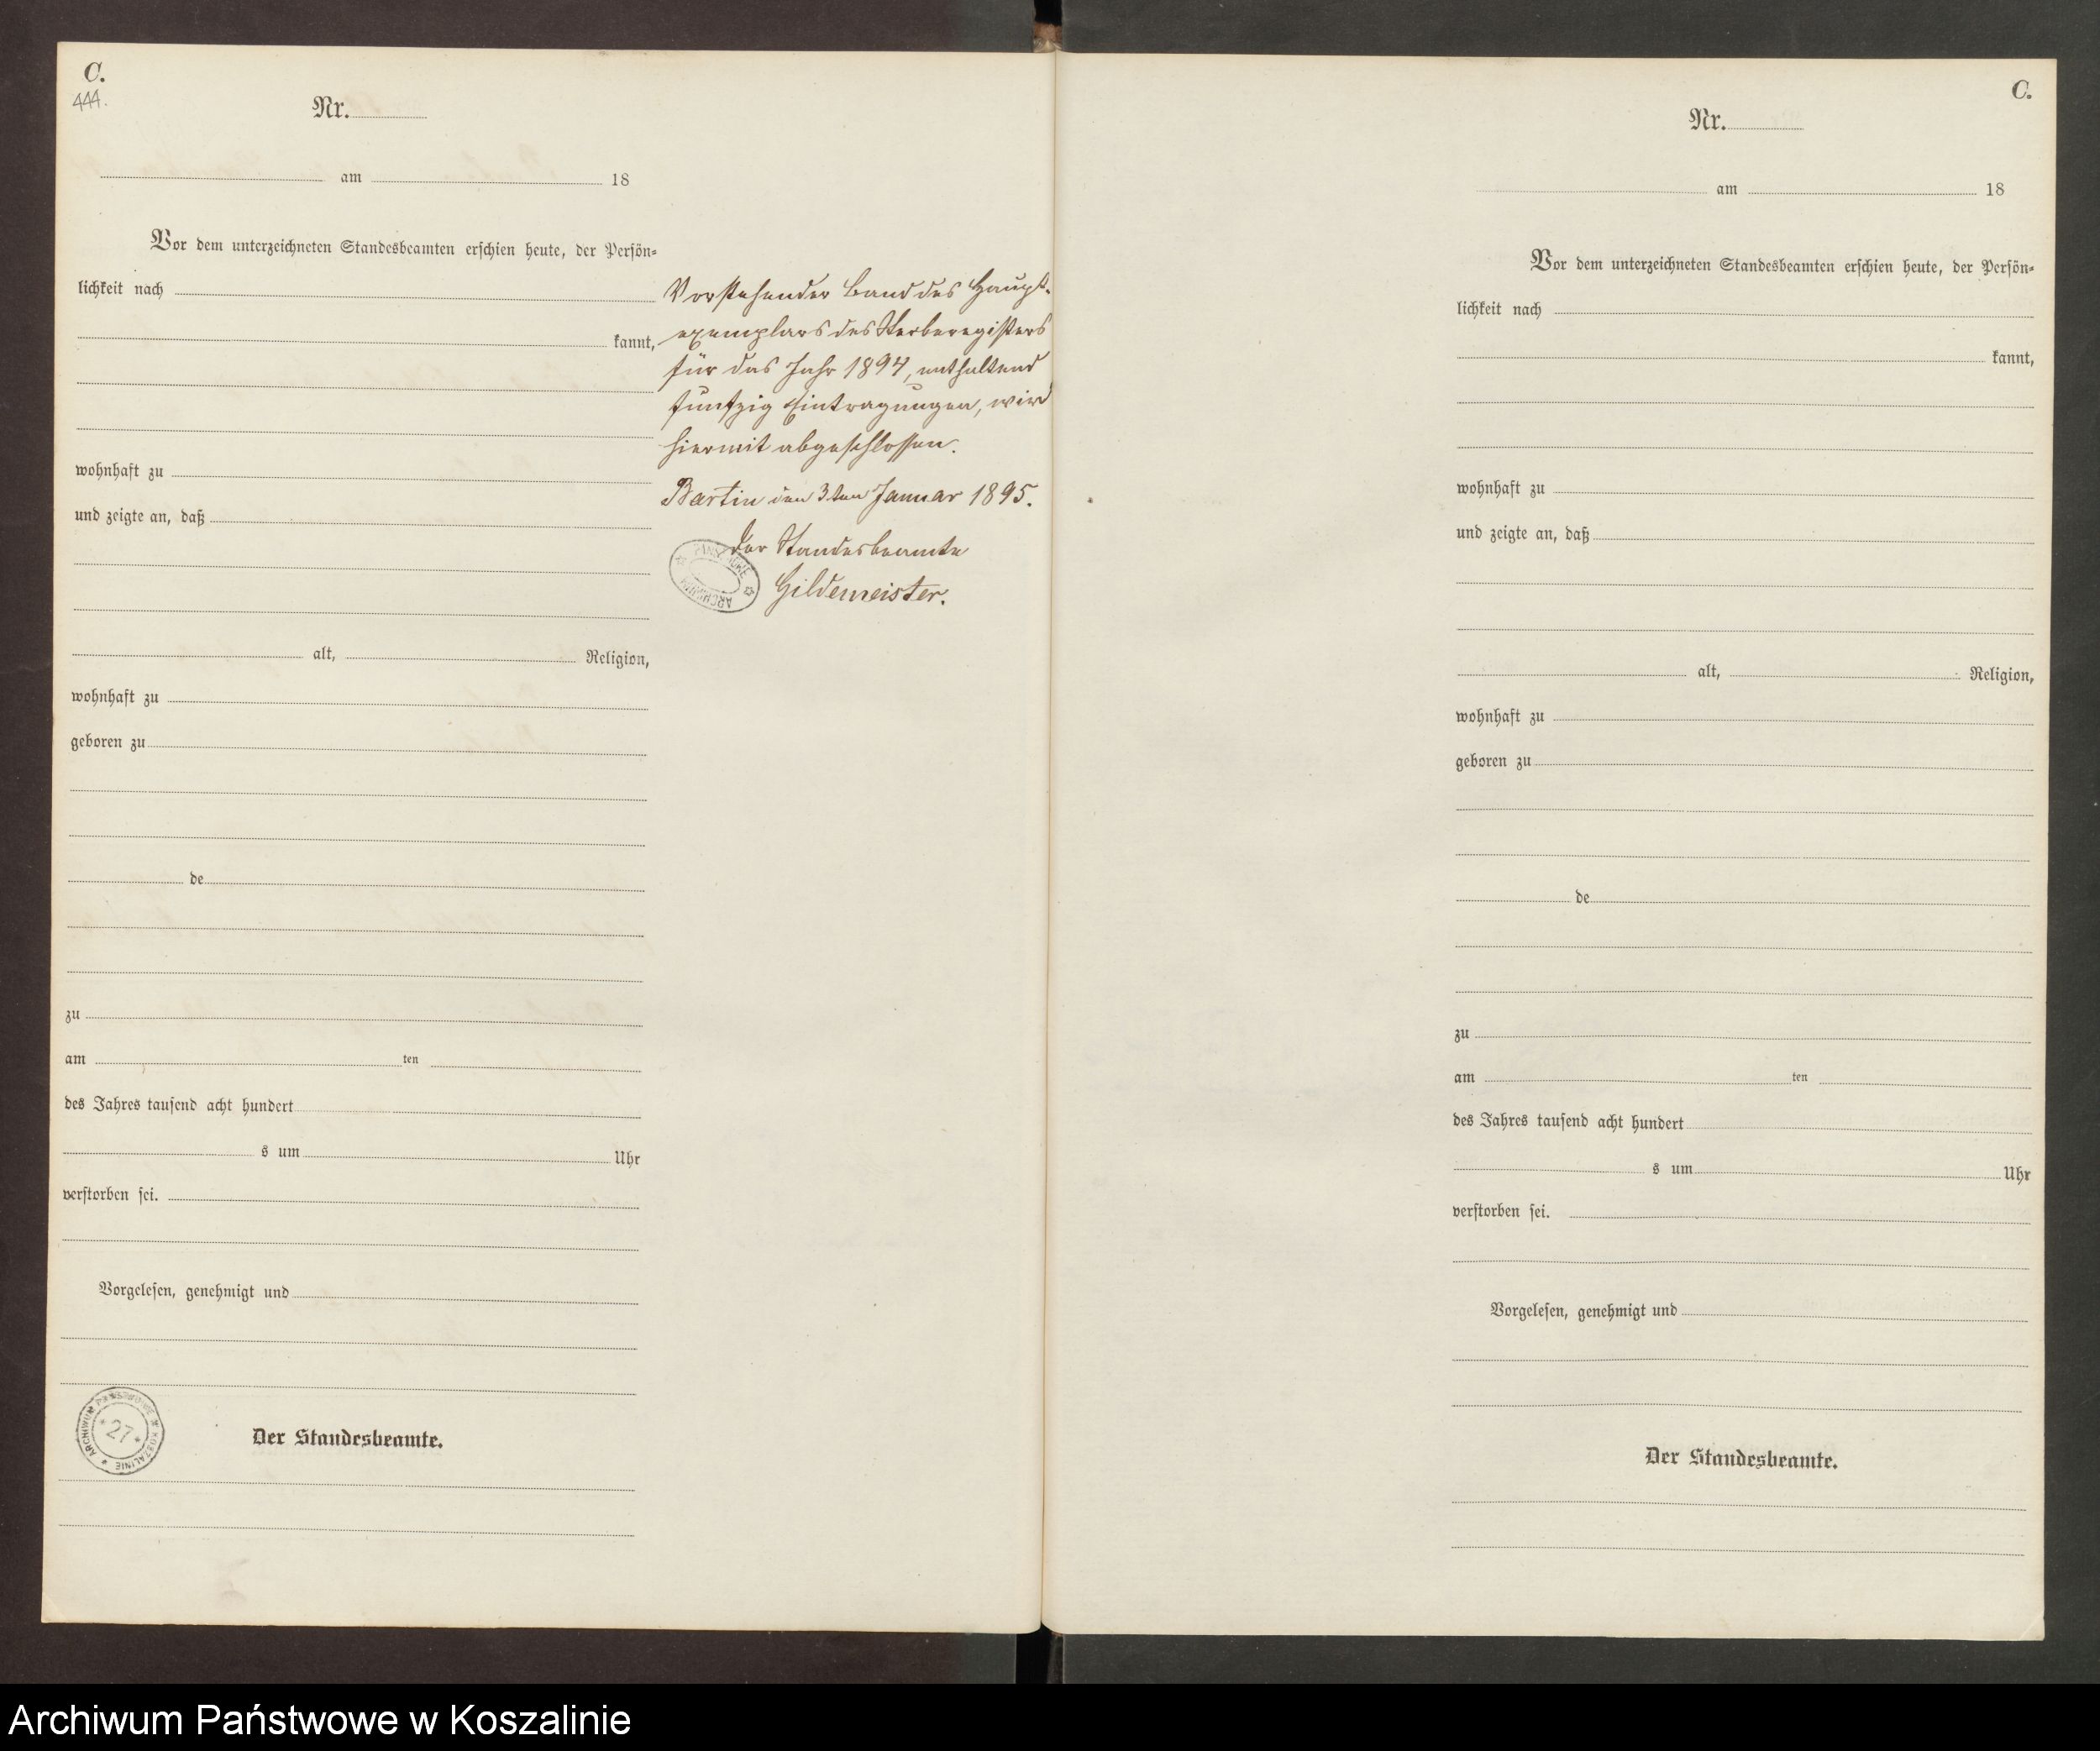 C.
444.
Nr.
am 18
Vor dem unterzeichneten Standesbeamten erschien heute, der Persön-
lichkeit nach
kannt,
wohnhaft zu
und zeigte an, daß
alt, Religion,
wohnhaft zu
geboren zu
de
zu
am ten
des Jahres tausend acht hundert
s um Uhr
verstorben sei.
Vorgelesen, genehmigt und
Der Standesbeamte.
ARCHIWUM PAŃSTWOWE W KOSZALINIE
*27*
Vorstehender Band des Haupt-
exemplars des Sterberegisters
für das Jahr 1894, enthaltend
fünfzig Eintragungen, wird
hiermit abgeschlossen.
Bartin den 3ten Januar 1895.
Der Standesbeamte
Gildemeister.
C.
Nr.
am 18
Vor dem unterzeichneten Standesbeamten erschien heute, der Persön-
lichkeit nach
kannt,
wohnhaft zu
und zeigte an, daß
alt, Religion,
wohnhaft zu
geboren zu
de
zu
am ten
des Jahres tausend acht hundert
s um Uhr
verstorben sei.
Vorgelesen, genehmigt und
Der Standesbeamte.
Archiwum Państwowe w Koszalinie